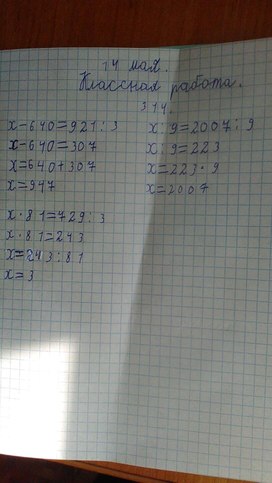 14 мая.
Классная работа.
314.
x-640=921:3
x-640=307
x=640+307
x=947
x:9=2007:9
x:9=223
x=223·9
x=2007
x·81=729:3
x·81=243
x=243:81
x=3